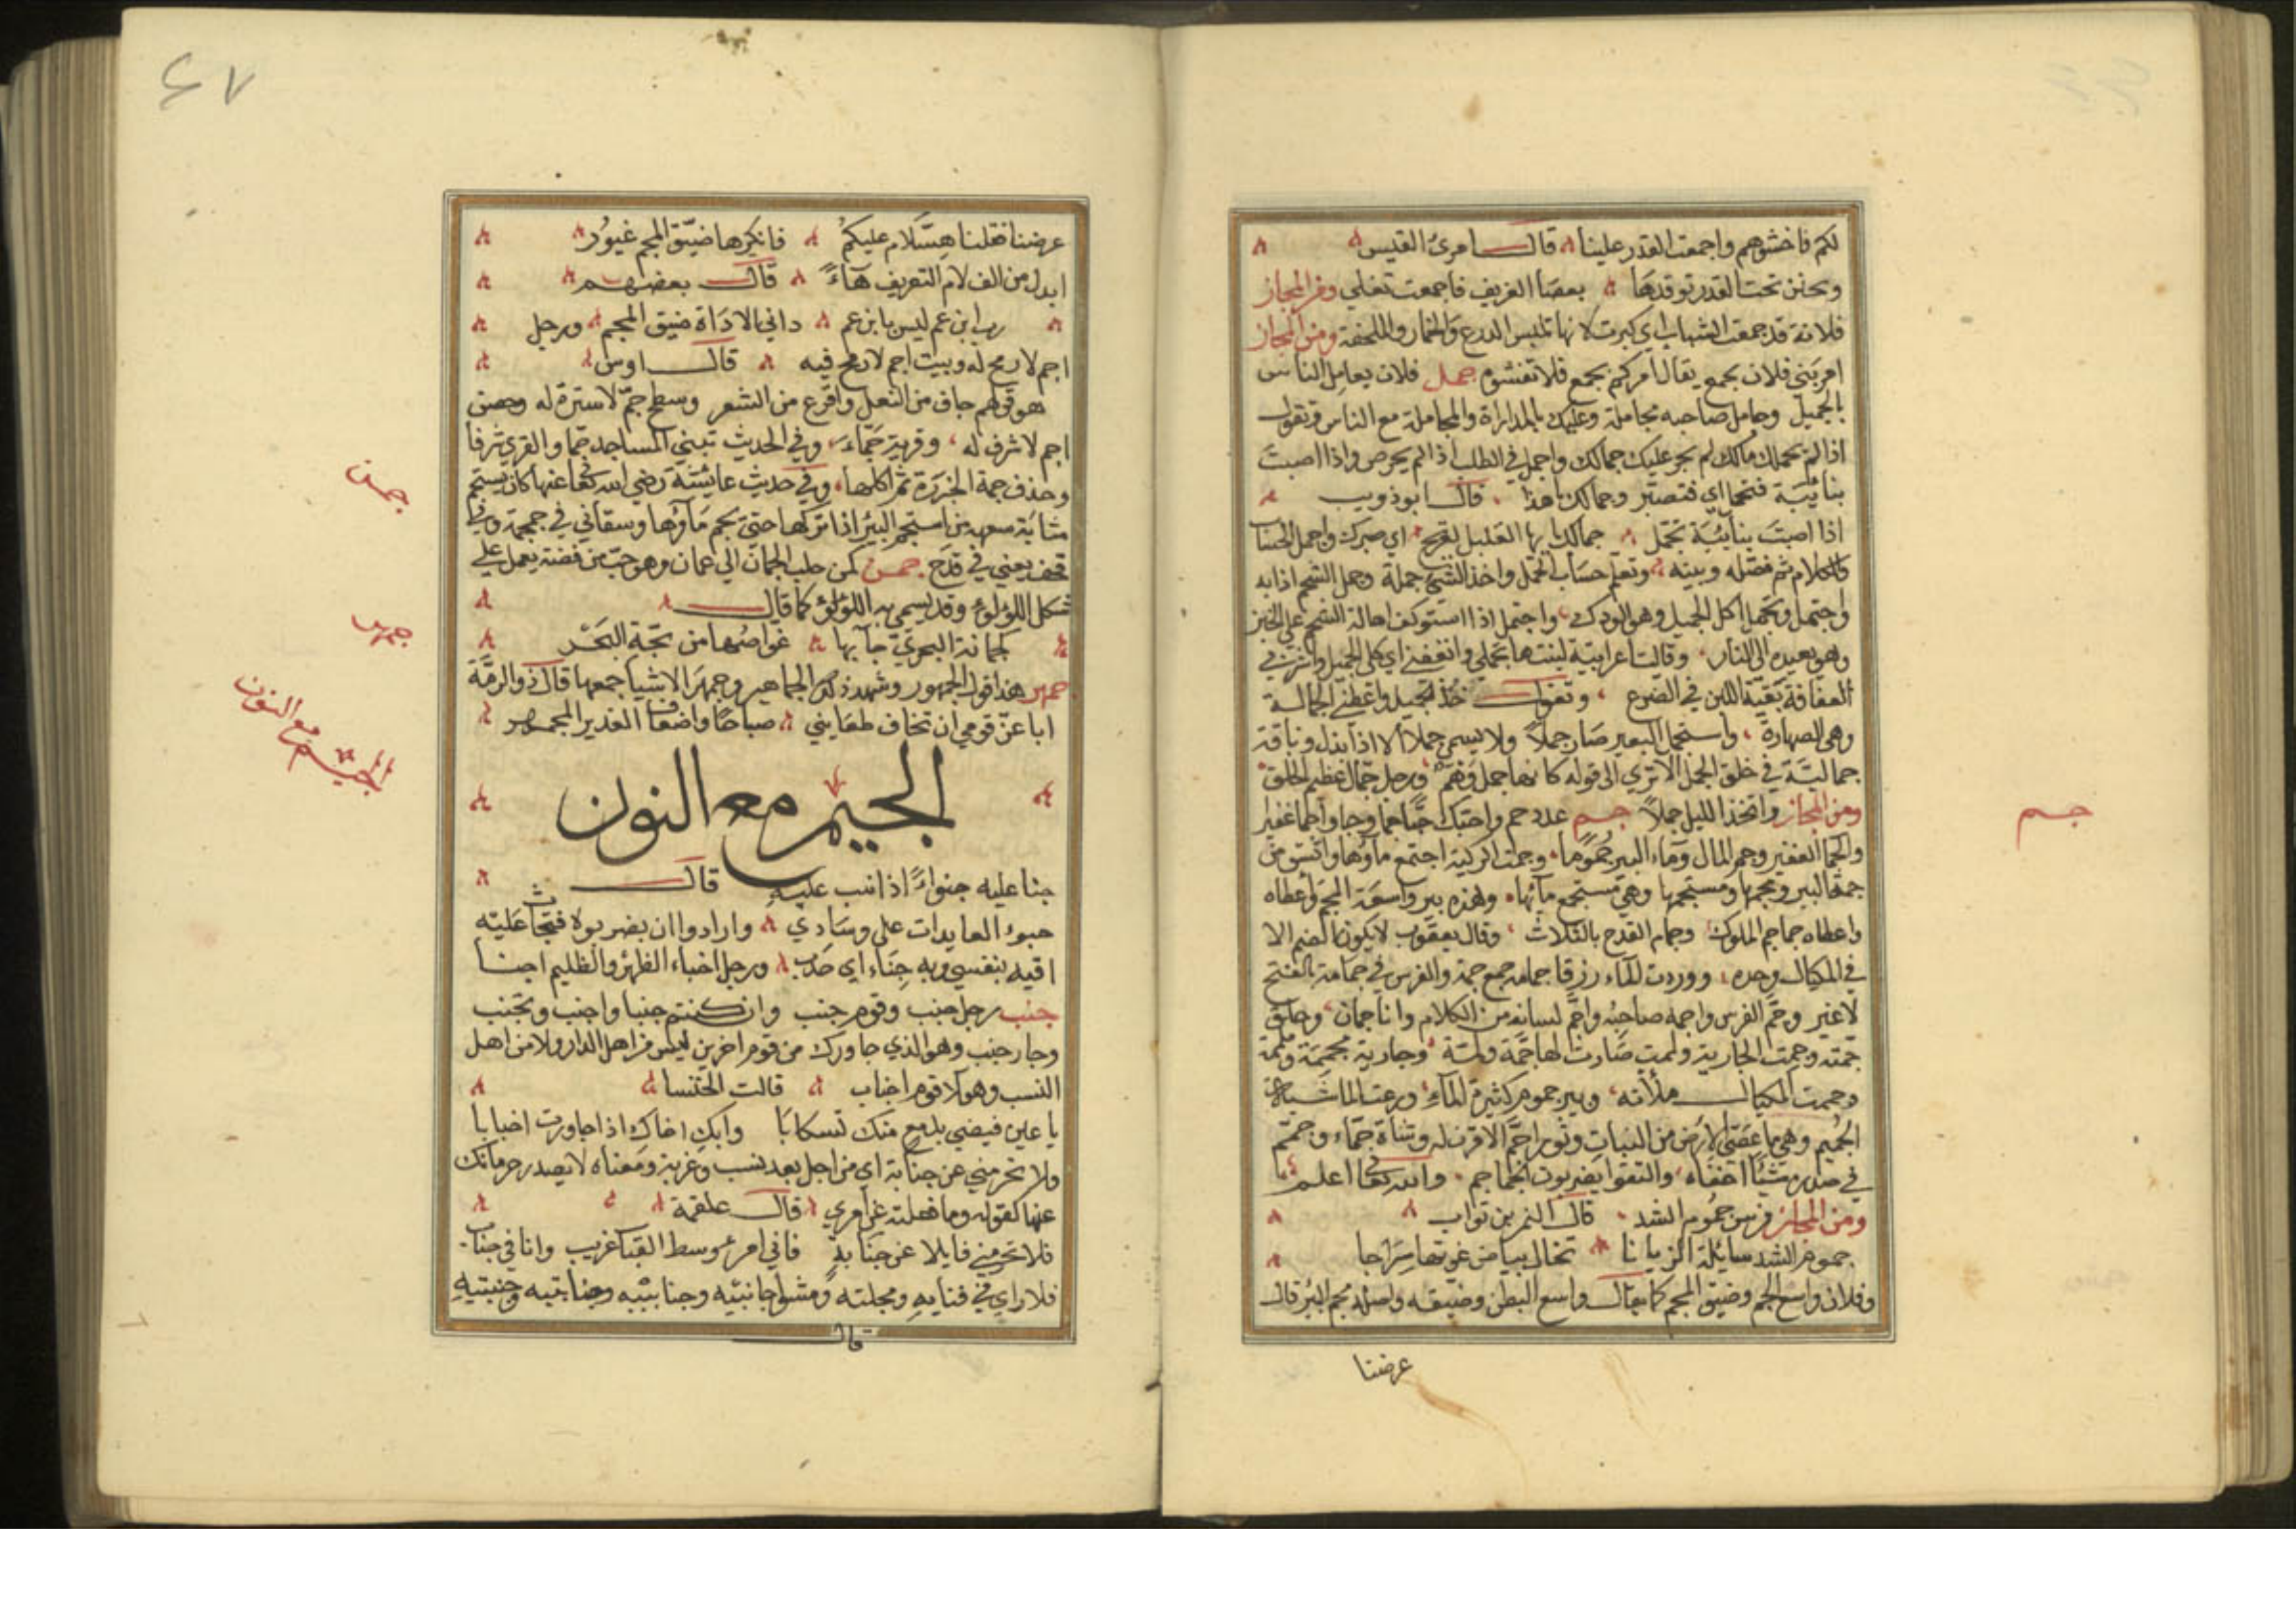 لكم فاخشوهم واجمعت القدر علينا قال امرئ القيس
ونحن تحت القدر توقدها بعضا الغريف فاجمعت تغلي ومن المجاز
فلانة قد جمعت الثياب اي كبرت لانها تلبس الدرع والخمار والملحفة ومن المجاز
امر بني فلان بجمع يقال امركم بجمع فلا تفشوه جمل فلان يعامل الناس
بالجميل وجامل صاحبه مجاملة وعليك بالمداراة والمجاملة مع الناس وتقول
اذا لم يجملك مالك لم يجر عليك جمالك واجمل في الطلب اذا لم يحرص واذا اصبت
بنائبة فتجمل اي فتصبر وجمالك هذا قال ابو ذويب
اذا اصبت بنائبة تجمل جمالك ايها القلب القريح اي صبرك واجمل الحساب
والكلام ثم فصله وبينه وتعلم حساب الجمل واخذ الشي جملة وجمل الشحم اذابه
واجتمل وتجمل اكل الجميل وهو الودك واجتمل اذا استوكف اهالة الشحم على الخبز
وهو يعيده الى النار وقالت اعرابية لبنتها تجملي وتعففي اي كلي الجميل واشربي
العفافة بقية اللبن في الضرع وتقول خذ الجميل واعطني الجمالة
وهي الصهارة واستجمل البعير صار جملا ولا يسمى جملا الا اذا بذل وناقة
جمالية في خلق الجمل الا تري الى قوله كانها جمل وهم ورجل جمالي عظيم الخلق
ومن المجاز واتخذ الليل جملا جم عدد جم واحبك حبا جما وجاوا جما غفيرا
والجما الغفير وجم المال وماء البير جموما وجمت الركية اجتمع ماؤها واستق من
جمة البير ومجمها ومستجمها وهي مستجمع مائها وهذه بير واسعة المجم واعطاه
واعطاه جماجم الملوك وجمام القدح بالثلاث وقال يعقوب لا يكون بالضم الا
في المكيال وحده ووردت الماء زرقا جمامه جمع جمة والفرس في جمامه بالفتح
لا غير وجم الفرس واجمه صاحبه واجم لسانه من الكلام وانا جمان وحلق
جمته وجممت الجارية ولممت صارت لها جمة ولمة وجارية مجممة وملممة
وجممت المكيال ملأته وبير جموم كثيرة الماء ورعت الماشية
الجميم وهي ما غطى الارض من النبات وثور اجم الاقرن له وشاة جماء وجمجم
في صدره شيئا اخفاه والتقوا يضربون الجماجم والله تعا اعلم
ومن المجاز فرس جموم الشد قال النمر بن تولب
جموم الشد سائلة الزيانا تخال بياض غرتها سراجا
وفلان واسع المجم وضيق المجم كما يقال واسع البطن وضيقه واصله مجم البئر قال
عرضنا
جم
٤٧
عرضنا فقلنا هسلام عليكم فانكرها ضيق المجم غيور
ابدل من الف لام التعريف هاء قال بعضهم
رب ابن عم ليس بابن عم داني الاداة ضيق المجم ورجل
اجم لا رمح له وبيت اجم لا رمح فيه قال اوس
هو قولهم حاف من النعل واقرع من الشعر وسطح جم لا سترة له وحصن
اجم لا شرف له وقرية جماء وفي الحديث تبني المساجد جما والقري شرفا
وحذف جمة الخزرة ثم اكلها وفي حديث عايشة رضي الله تعا عنها كان يستجم
مثابة سفهه من استجم البئر اذا تركها حتى يجم ماؤها وسقاني في جمجمة وفي
قحف يعني في قدح جمن كمن جلب الجمان الى عمان وهو حب من فضة يعمل على
شكل اللؤلؤ وقد يسمى به اللؤلؤ كما قال
كجمانة البحري جآ بها غواصها من لجة البحر
جمهر هذا قول الجمهور وشهد ذلك الجماهير وجمهر الاشيا جمعها قال ذو الرمة
ابا عز قومي ان تخاف ظعايني صباحا واضعاف الغدير المجمهر
الجيم مع النون
جنا عليه جنواء اذا انب عليه قال
جنوء العايدات على وسادي وارادوا ان يضربوه فتجانث عليه
اقيه بنفسي وبه جناء اي حدب ورجل اجناء الظهر والظليم اجنا
جنب رجل جنب وقوم جنب وان كنتم جنبا واجنب وتجنب
وجار جنب وهو الذي جاورك من قوم اخرين ليس من اهل الدار ولا من اهل
النسب وهولا قوم اجناب قالت الخنسا
يا عين فيضي بدمع منك تسكابا وابك اخاك اذا جاورت اجنابا
ولا تحرمني عن جنابة اي من اجل بعد نسب وغربة ومعناه لا يصدر حرمانك
عنها كقوله وما فعلته عن امري قال علقمة
فلا تحرمني نايلا عن جنابة فاني امرء وسط القبا غريب وانا في جناب
فلان اي في فنايه ومحلته ومشوا جانبيه وجنابيه وجنابتيه وجنبتيه
قال
جمن
جمهر
الجيم مع النون